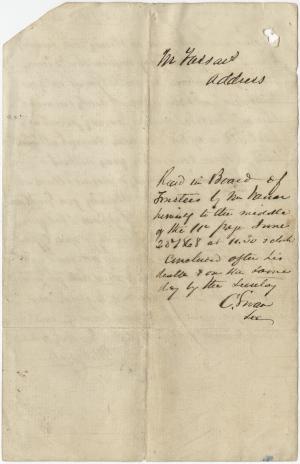 Mr Vassar's
Address
Read in Board of
Trustees by Mr Vassar
himself to the middle
of the 11th page June
23 1868 at 11.50 oclock
Concluded after his
death & on the same
day by the Secretary
C. Swan
Sec